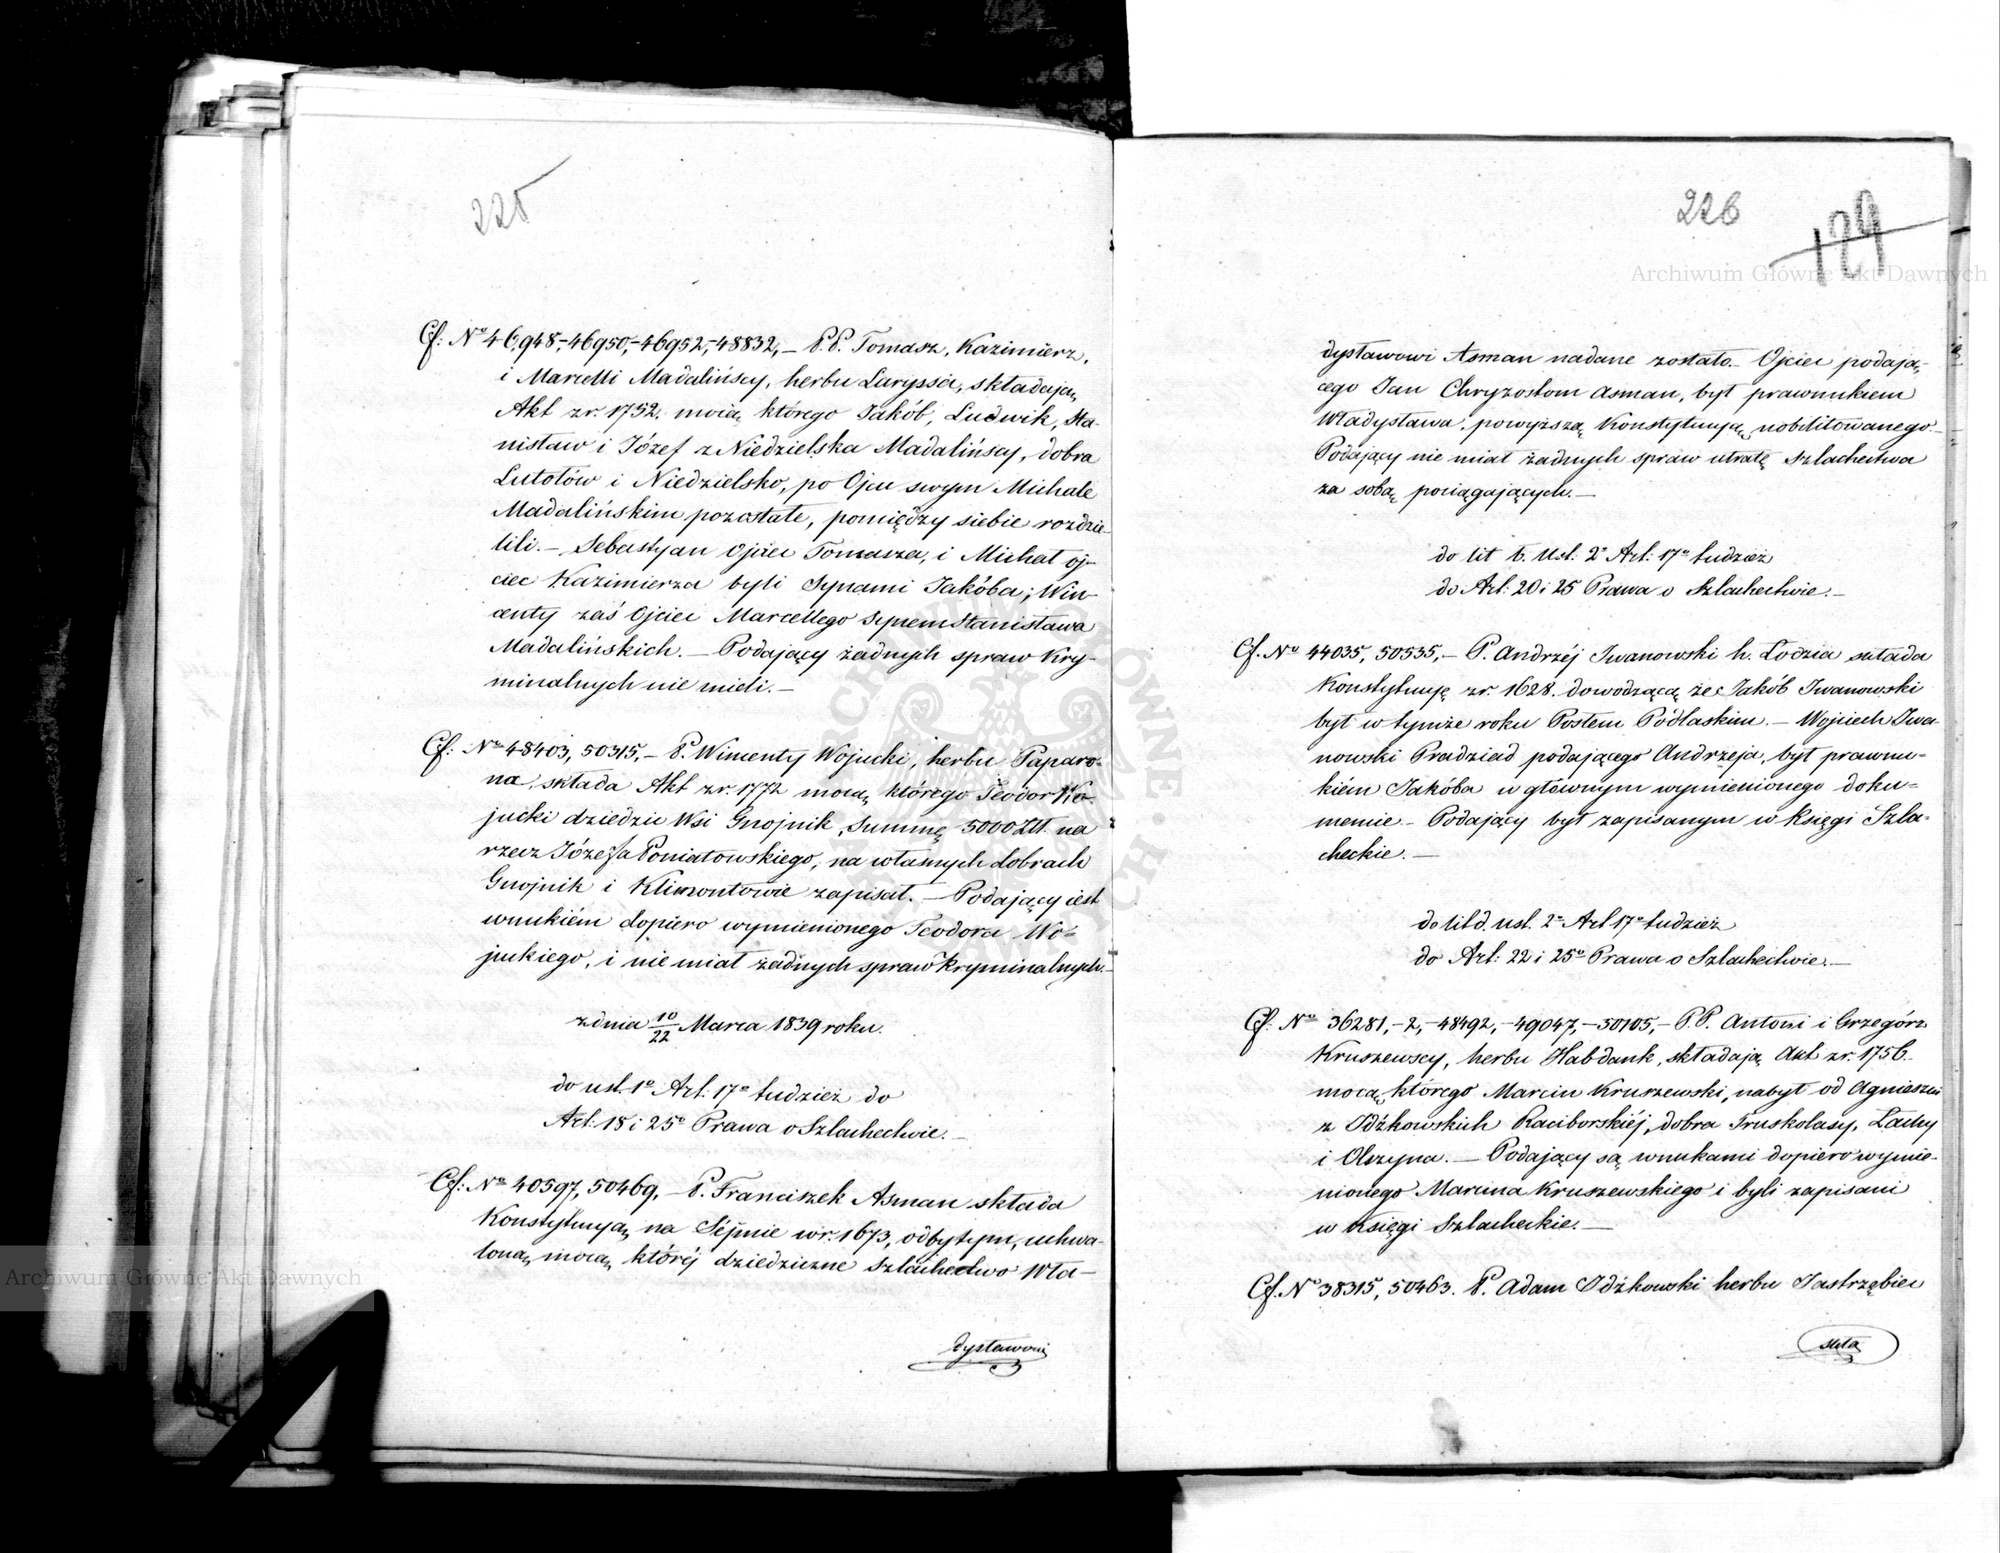 225
Cf: Nº 46,948,-46950,-46952,-48832,- P.P. Tomasz, Kazimierz,
i Marcelli Madalińscy, herbu Laryssa, składają
Akt z r. 1752. mocą którego Jakób, Ludwik, Sta-
nisław i Józef z Niedzielska Madalińscy, dobra
Lututów i Niedzielsko, po Ojcu swym Michale
Madalińskim pozostałe, pomiędzy siebie rozdzie-
lili. – Sebastyan Ojciec Tomasza, i Michał oj-
ciec Kazimierza byli Synami Jakóba; Win-
centy zaś Ojciec Marcellego Synem Stanisława
Madalińskich. – Podający żadnych spraw Kry-
minalnych nie mieli. –
Cf: Nº 48403, 50315,- P. Wincenty Wojucki, herbu Paparo-
na, składa Akt z r. 1772 mocą którego Teodor Wo-
jucki dziedzic Wsi Gnojnik, Summę 5000 Złt. na
rzecz Józefa Poniatowskiego, na własnych dobrach
Gnojnik i Klimontowie zapisał. – Podający jest
wnukiém dopiero wymienionego Teodora Wo-
juckiego, i nie miał żadnych spraw kryminalnych. –
z dnia 10/22 Marca 1839 roku.
do ust. 1º Art. 17º tudzież do
Art: 18 i 25º Prawa o Szlachectwie. –
Cf: Nº 40597, 50469, – P. Franciszek Asman składa
Konstytucyą, na Sejmie w r. 1673, odbytym, uchwa-
loną, mocą któréj dziedziczne Szlachectwo Wła-
dysławowi
226
129
dysławowi Asman nadane zostało. – Ojciec podają-
cego Jan Chryzostom Asman, był prawnukiem
Władysława, powyższą Konstytucyą nobilitowanego. –
Podający nie miał żadnych spraw utratę Szlachectwa
za sobą pociągających. –
do lit b. Ust: 2º Art: 17º tudzież
do Art: 20 i 25 Prawa o Szlachectwie. –
Cf. Nº 44035, 50535,- P. Andrzéj Iwanowski h. Łodzia składa
Konstytucyę z r. 1628. dowodzącą że Jakób Iwanowski
był w tymże roku Posłem Podlaskim. – Wojciech Iwa-
nowski Pradziad podającego Andrzeja, był prawnu-
kiém Jakóba w głównym wymienionego doku-
mencie. – Podający był zapisanym w Księgi Szla-
checkie. –
do lit d. ust. 2º Art 17º tudzież
do Art: 22 i 25º Prawa o Szlachectwie. –
Cf: Nº 36281,-2,-48492,-49047,-50105,- P.P. Antoni i Grzegórz
Kruszewscy, herbu Habdank, składają Akt z r. 1756.
mocą którego Marcin Kruszewski, nabył od Agnieszki
z Idźkowskich Raciborskiéj, dobra Truskolasy, Lachy
i Olszyna. – Podający są wnukami dopiero wymie-
nionego Marcina Kruszewskiego i byli zapisani
w Księgi Szlacheckie. –
Cf. Nº 38315, 50463. P. Adam Idźkowski herbu Jastrzębiec
skła
Archiwum Główne Akt Dawnych
Archiwum Główne Akt Dawnych